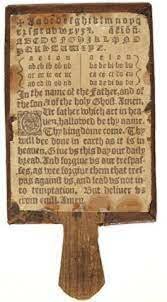 Aabcdefghiklmnopq
rſstuvwxyz
ABCDEFGHIKLMNOP
a e i o u a e i o u
ab eb ib ob ub ba be bi bo bu
ac ec ic oc uc ca ce ci co cu
ad ed id od ud da de di do du
In the name of the Father, and of
the Son & of the holy Ghoſt. Amen.
OUr Father which art in
heauen, hallowed be thy name.
Thy kingdome come. Thy
will bee done in earth as it is in
heauen. Giue vs this day our daily
bread. And forgiue vs our treſpaſ-
ſes, as wee forgiue them that treſ-
pas againſt vs. and lead vs not in
to temptation, But deliuer vs
from euill. Amen.